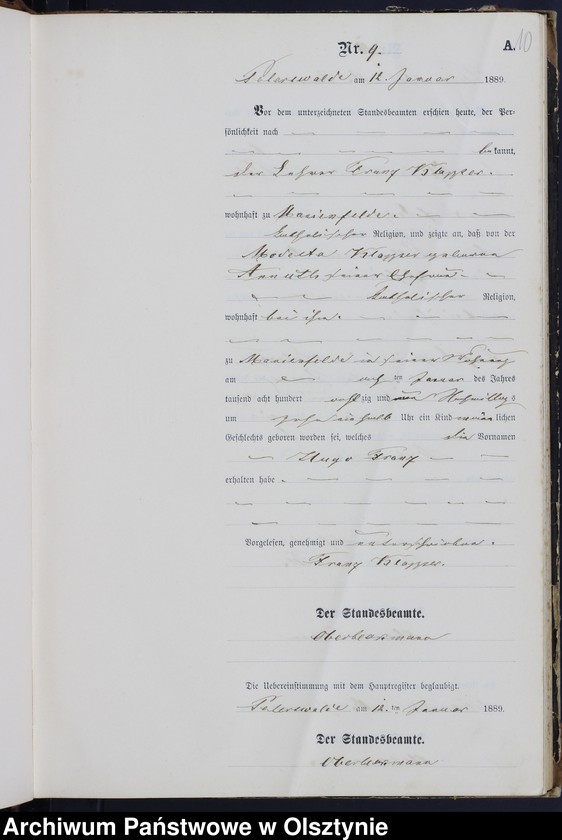 10
Nr. 9. A.
Peterswalde am 12. Januar 1889.
Vor dem unterzeichneten Standesbeamten erschien heute, der Per-
sönlichkeit nach
bekannt,
der Lehrer Franz Klapper.
wohnhaft zu Marienfelde.
katholischer Religion, und zeigte an, daß von der
Modesta Klapper geborene
Annuth seiner Ehefrau
katholischer Religion,
wohnhaft bei ihm.
zu Marienfelde in seiner Wohnung
am ten Januar des Jahres
tausend acht hundert achtzig und neun Nachmittags
um zehn einhalb Uhr ein Kind männlichen
Geschlechts geboren worden sei, welches die Vornamen
Hugo Franz
erhalten habe.
Vorgelesen, genehmigt und unterschrieben.
Franz Klapper.
Der Standesbeamte.
Die Uebereinstimmung mit dem Hauptregister beglaubigt.
Peterswalde am 12. ten Januar 1889.
Der Standesbeamte.
Archiwum Państwowe w Olsztynie